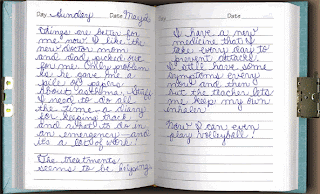 Day Sunday Date May 15
Things are better for
me now. I like the
new doctor mom
and dad picked out
for me. Only problem
is he gave me a
pile of papers
about asthma. Stuff
I need to do all
the time and stuff
for keeping track
and what to do in
an emergency - and
its a lot of work!
The treatments
seems to be helping.
Day Date
I have a new
medicine that I
take every day to
prevent attacks.
I still have some
symptoms every
now and then
but the teacher lets
me keep my own
inhaler
Now I can even
play volleyball!